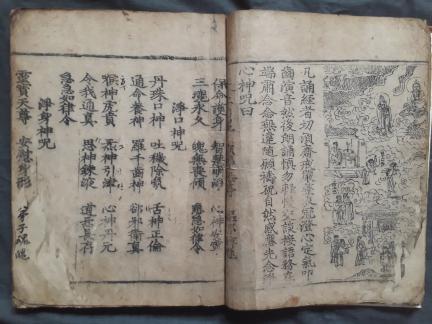 凡誦經者切須齋戒嚴整衣冠澄心定氣叩
齒演音然後朗誦慎勿輕慢交談接語務在
端肅念念無違隨願禱祝自然感應先念淨
心神呪曰
保命護身 智慧明淨 心神安寧
三魂永久 魄無喪傾 急急如律令
淨口神呪
丹珠口神 吐穢除氛 舌神正倫
通命養神 羅千齒神 却邪衛真
喉神虎賁 炁神引津 心神丹元
令我通真 思神鍊液 道炁長存
急急如律令
淨身神呪
靈寶天尊 安慰身形 弟子魂魄